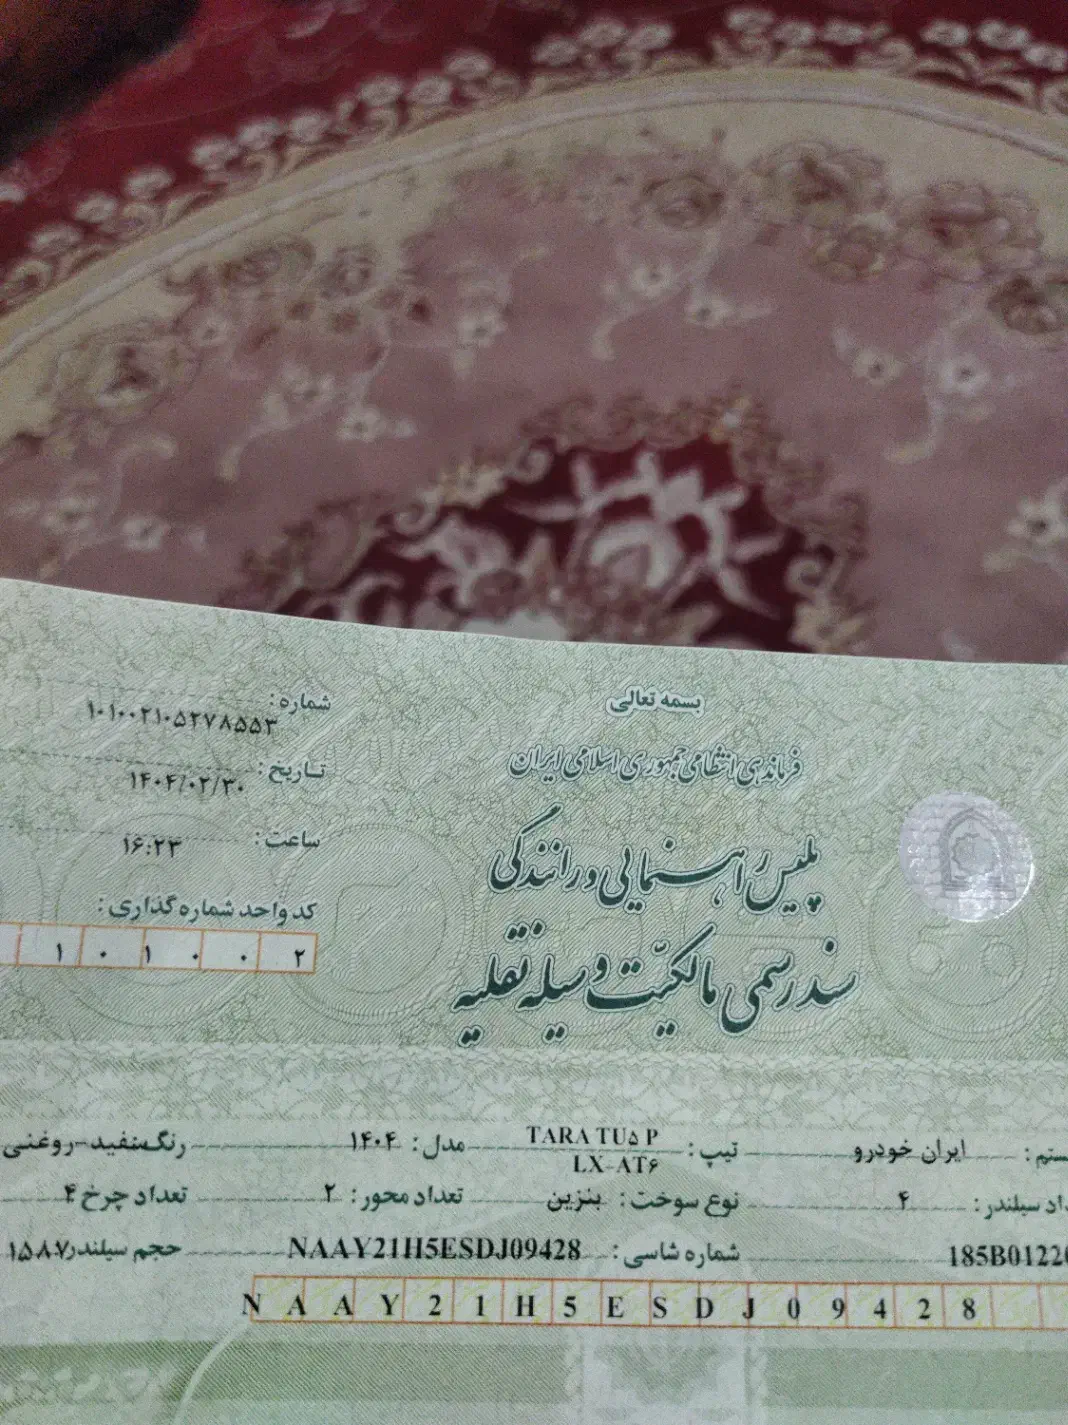 بسمه تعالی
فرماندهی انتظامی جمهوری اسلامی ایران
پلیس راهنمایی و رانندگی
سند رسمی مالکیت وسیله نقلیه
شماره: ۱۰۱۰۰۲۱۰۵۲۷۸۵۵۳
تاریخ: ۱۴۰۴/۰۲/۳۰
ساعت: ۱۶:۲۳
کد واحد شماره گذاری:
۱ ۰ ۱ ۰ ۰ ۲
ایران خودرو تیپ: TARA TU۵ P LX-AT۶ مدل: ۱۴۰۴ رنگ سفید-روغنی
سیلندر: ۴ نوع سوخت: بنزین تعداد محور: ۲ تعداد چرخ ۴
185B0122 شماره شاسی: NAAY21H5ESDJ09428 حجم سیلندر ۱۵۸۷
N A A Y 2 1 H 5 E S D J 0 9 4 2 8